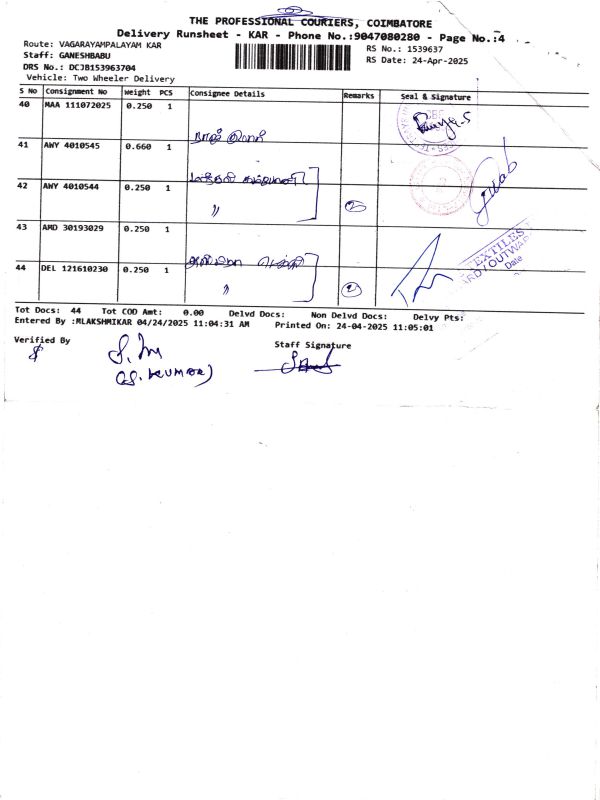 THE PROFESSIONAL COURIERS, COIMBATORE
Delivery Runsheet - KAR - Phone No.:9047080280 - Page No.:4
Route: VAGARAYAMPALAYAM KAR
RS No.: 1539637
Staff: GANESHBABU
RS Date: 24-Apr-2025
DRS No.: DCJB153963704
Vehicle: Two Wheeler Delivery
S No Consignment No Weight PCS Consignee Details Remarks Seal & Signature
40 MAA 111072025 0.250 1
41 AWY 4010545 0.660 1
42 AWY 4010544 0.250 1
〃 2
43 AMD 30193029 0.250 1
TEXTILES
ARD / OUTWAR
Date
44 DEL 121610230 0.250 1
〃 2
Tot Docs: 44 Tot COD Amt: 0.00 Delvd Docs: Non Delvd Docs: Delvy Pts:
Entered By :MLAKSHMIKAR 04/24/2025 11:04:31 AM Printed On: 24-04-2025 11:05:01
Verified By
Staff Signature
(S. KUMAR)